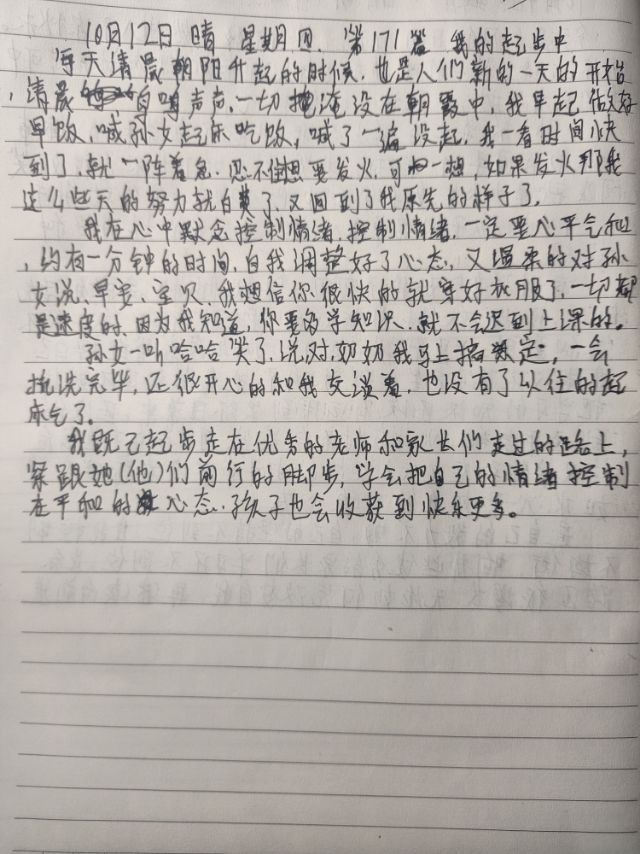 10月12日 晴 星期四. 第171篇 我的起步中
每天清晨朝阳升起的时候,也是人们新的一天的开始
,清晨鸟鸣声声,一切掩淹没在朝霞中,我早起做好
早饭,喊孙女起床吃饭,喊了一遍没起,我一看时间快
到了,就一阵着急,忍不住想要发火,可一想,如果发火那我
这么些天的努力就白费了,又回到了我原先的样子了。
我在心中默念控制情绪,控制情绪,一定要心平气和
,约有一分钟的时间,自我调整好了心态,又温柔的对孙
女说,早安,宝贝,我想信你很快的就穿好衣服了,一切都
是速度的,因为我知道,你要多学知识,就不会迟到上课的。
孙女一听哈哈笑了,说,对,奶奶我马上搞定,一会
梳洗完毕,还很开心的和我交谈着,也没有了以往的起
床气了。
我既已起步走在优秀的老师和家长们走过的路上,
紧跟她(他)们前行的脚步,学会把自己的情绪控制
在平和的心态,孩子也会收获到快乐更多。